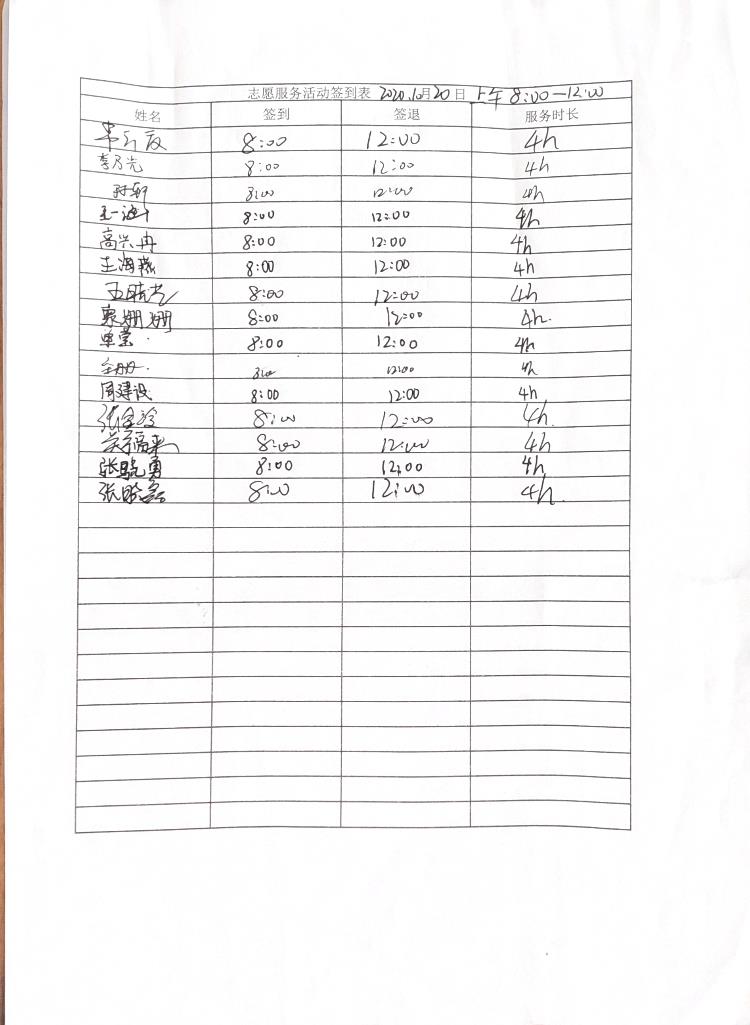 志愿服务活动签到表 2020.10月20日 上午 8:00—12:00
姓名 签到 签退 服务时长
8:00 12:00 4h
李乃光 8:00 12:00 4h
8:00 12:00 4h
8:00 12:00 4h
高兴冉 8:00 12:00 4h
王海燕 8:00 12:00 4h
8:00 12:00 4h
姗姗 8:00 12:00 4h.
8:00 12:00 4h
8:00 12:00 4h
周建设 8:00 12:00 4h
张 8:00 12:00 4h.
8:00 12:00 4h
张晓勇 8:00 12:00 4h
张晓 8:00 12:00 4h.